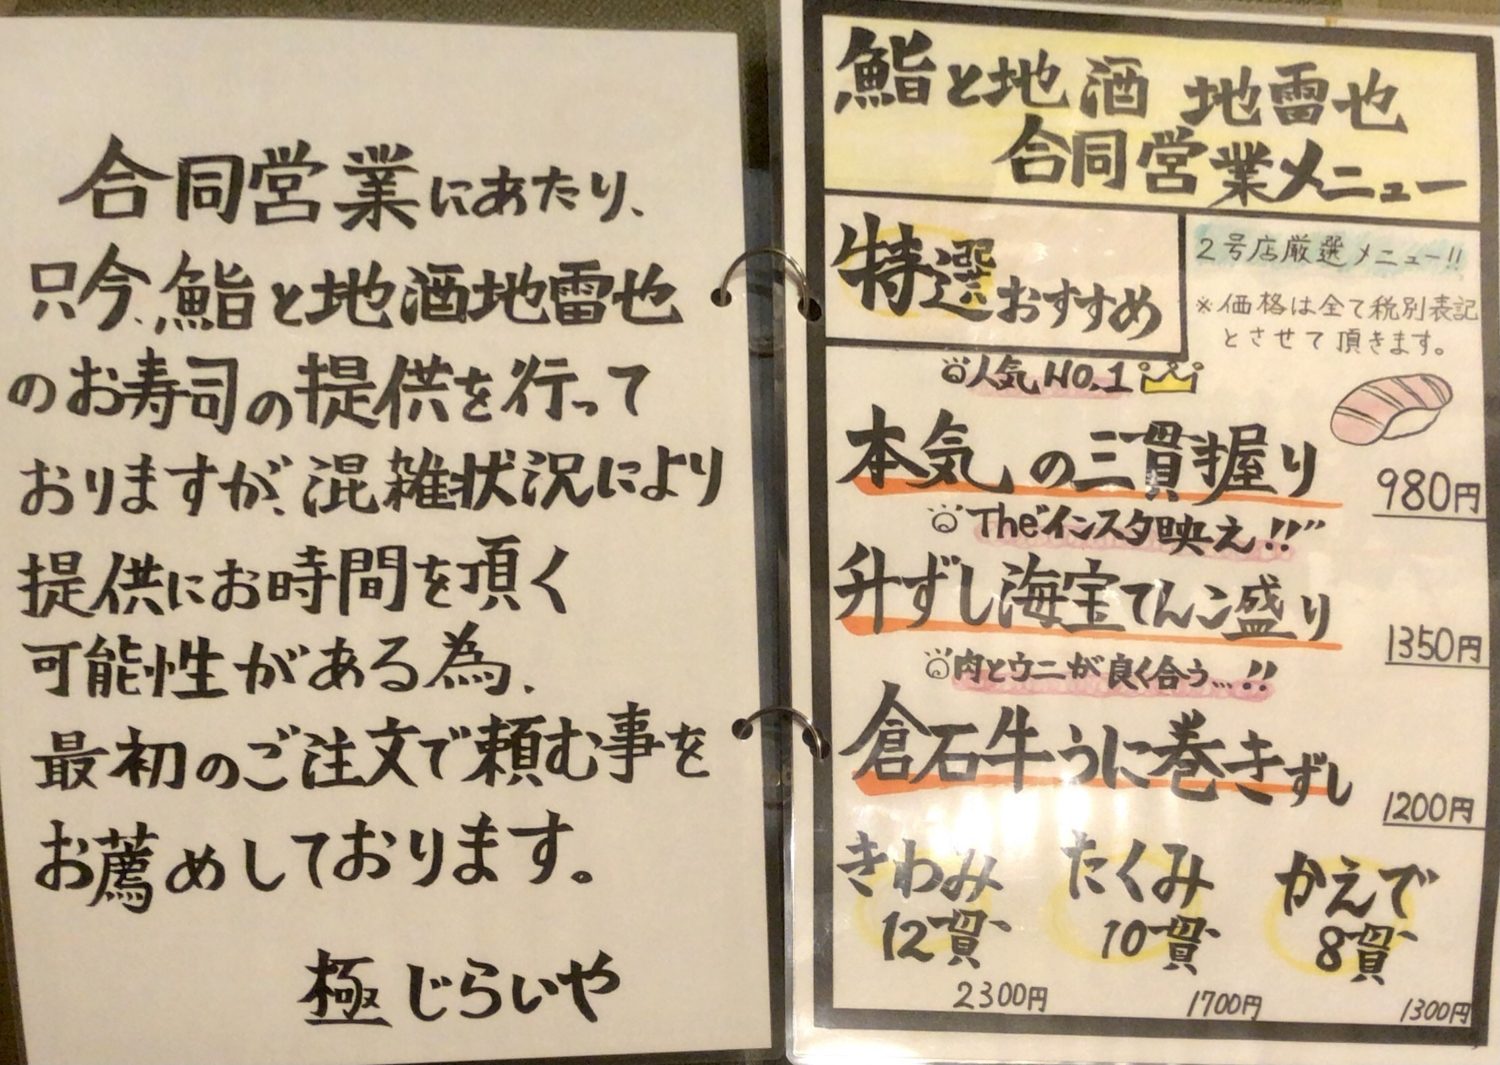 合同営業にあたり、
只今、鮨と地酒地雷也
のお寿司の提供を行って
おりますが、混雑状況により
提供にお時間を頂く
可能性がある為、
最初のご注文で頼む事を
お薦めしております。
極じらいや
鮨と地酒 地雷也
合同営業メニュー
特選おすすめ
2号店厳選メニュー!!
※価格は全て税別表記
とさせて頂きます。
人気NO.1
本気の三貫握り 980円
The"インスタ映え!!"
升ずし海宝てんこ盛り 1350円
肉とウニが良く合う...!!
倉石牛うに巻きずし 1200円
きわみ たくみ かえで
12貫 10貫 8貫
2300円 1700円 1300円